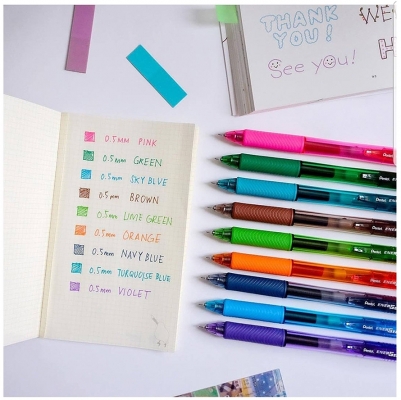 THANK
YOU!
WE
H
See you!
0.5mm PINK
0.5mm GREEN
0.5mm SKY BLUE
0.5mm BROWN
0.5mm LIME GREEN
0.5mm ORANGE
0.5mm NAVY BLUE
0.5mm TURQUOISE BLUE
0.5mm VIOLET
Pentel ENERGEL
Pentel ENERGEL
Pentel ENERGEL
Pentel ENERGEL
Pentel ENERGEL
Pentel ENERGEL
Pentel ENERGEL
Pentel ENERGEL
Pentel ENERGEL